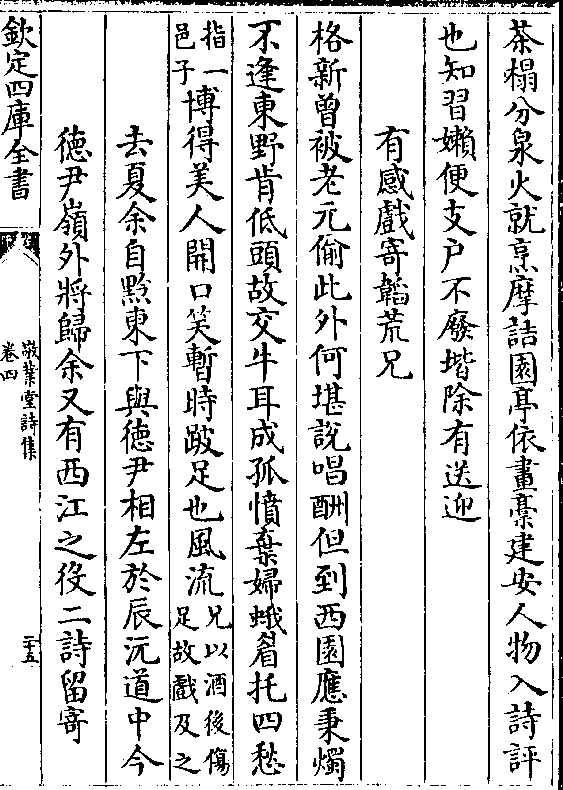 茶榻分泉火就烹摩詰園亭依畫藁建安人物入詩評
也知習嬾便支户不廢堦除有送迎
有感戲寄韜荒兄
格新曾被老元偷此外何堪說唱酬但到西園應秉燭
不逢東野肯低頭故交牛耳成孤憤棄婦蛾眉托四愁
指一邑子
博得美人開口笑暫時跛足也風流
兄以酒後傷足故戲及之
去夏余自黔東下與徳尹相左於辰沅道中今
徳尹嶺外將歸余又有西江之役二詩留寄
欽定四庫全書
敬業堂詩集
卷四
二十五